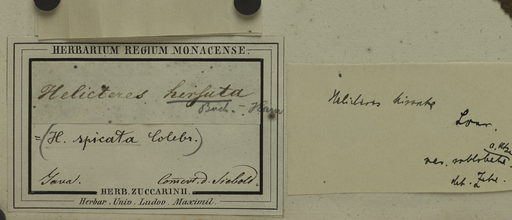 HERBARIUM REGIUM MONACENSE.
Helicteres hirsuta
Buch. - Ham
= (H. spicata Colebr.)
Java. Comm. d. Siebold.
HERB. ZUCCARINII.
Herbar. Univ. Ludov. Maximil.
Helicteres hirsuta
Lour.
var.
det.